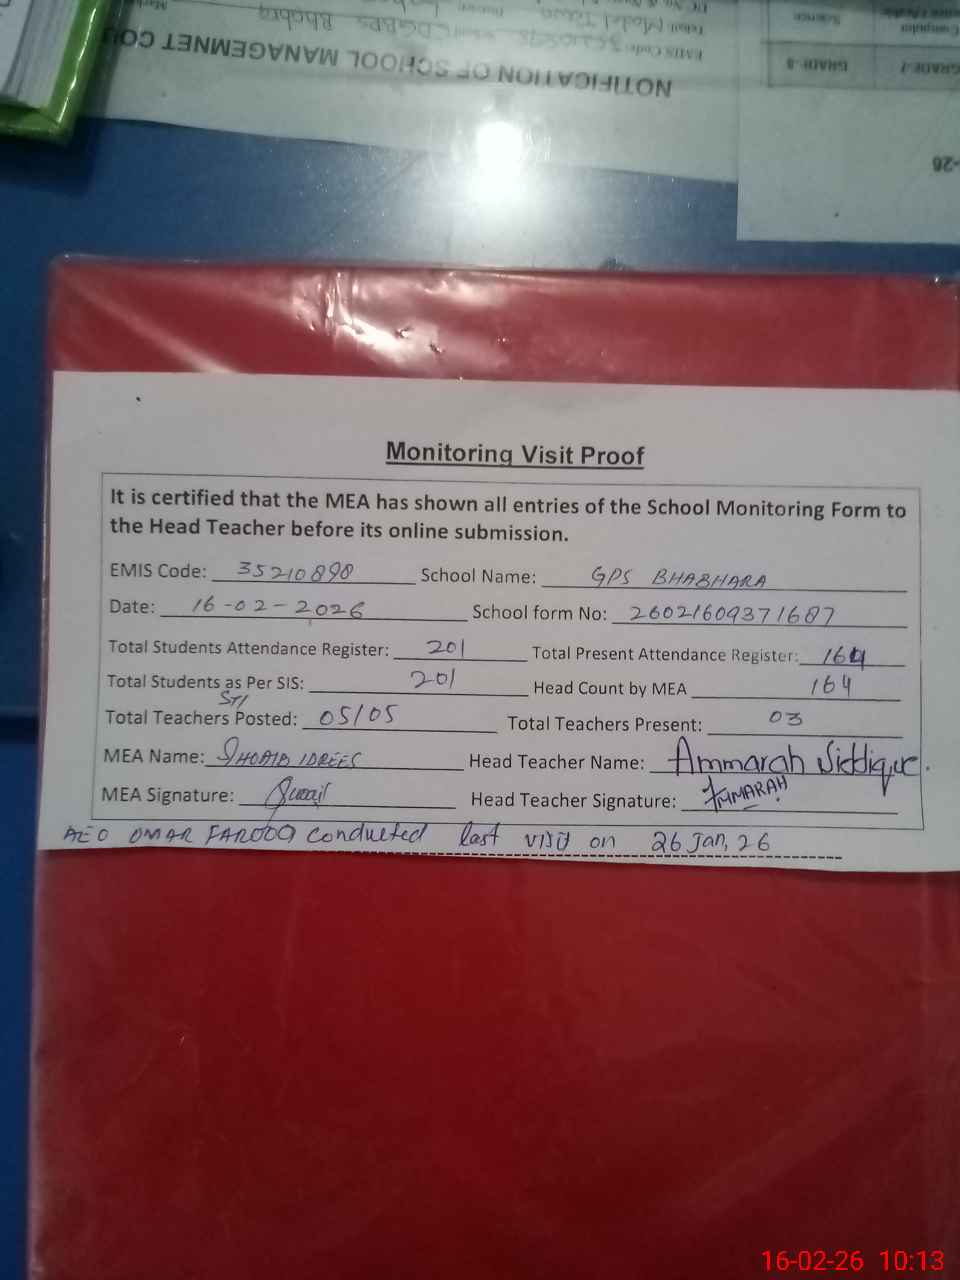 NOTIFICATION OF SCHOOL MANAGEMNET COU
EMIS Code:
GRADE-7 GRADE-8
Computer Science
-26
Monitoring Visit Proof
It is certified that the MEA has shown all entries of the School Monitoring Form to
the Head Teacher before its online submission.
EMIS Code: 35210898 School Name: GPS BHABHARA
Date: 16-02-2026 School form No: 26021609371687
Total Students Attendance Register: 201 Total Present Attendance Register: 164
Total Students as Per SIS: 201 Head Count by MEA 164
STI
Total Teachers Posted: 05/05 Total Teachers Present: 03
MEA Name: SHOAIB IDREES Head Teacher Name: Ammarah Siddique.
MEA Signature: Head Teacher Signature: AMMARAH
AEO OMAR FAROOQ conducted last visit on 26 Jan, 26
16-02-26 10:13